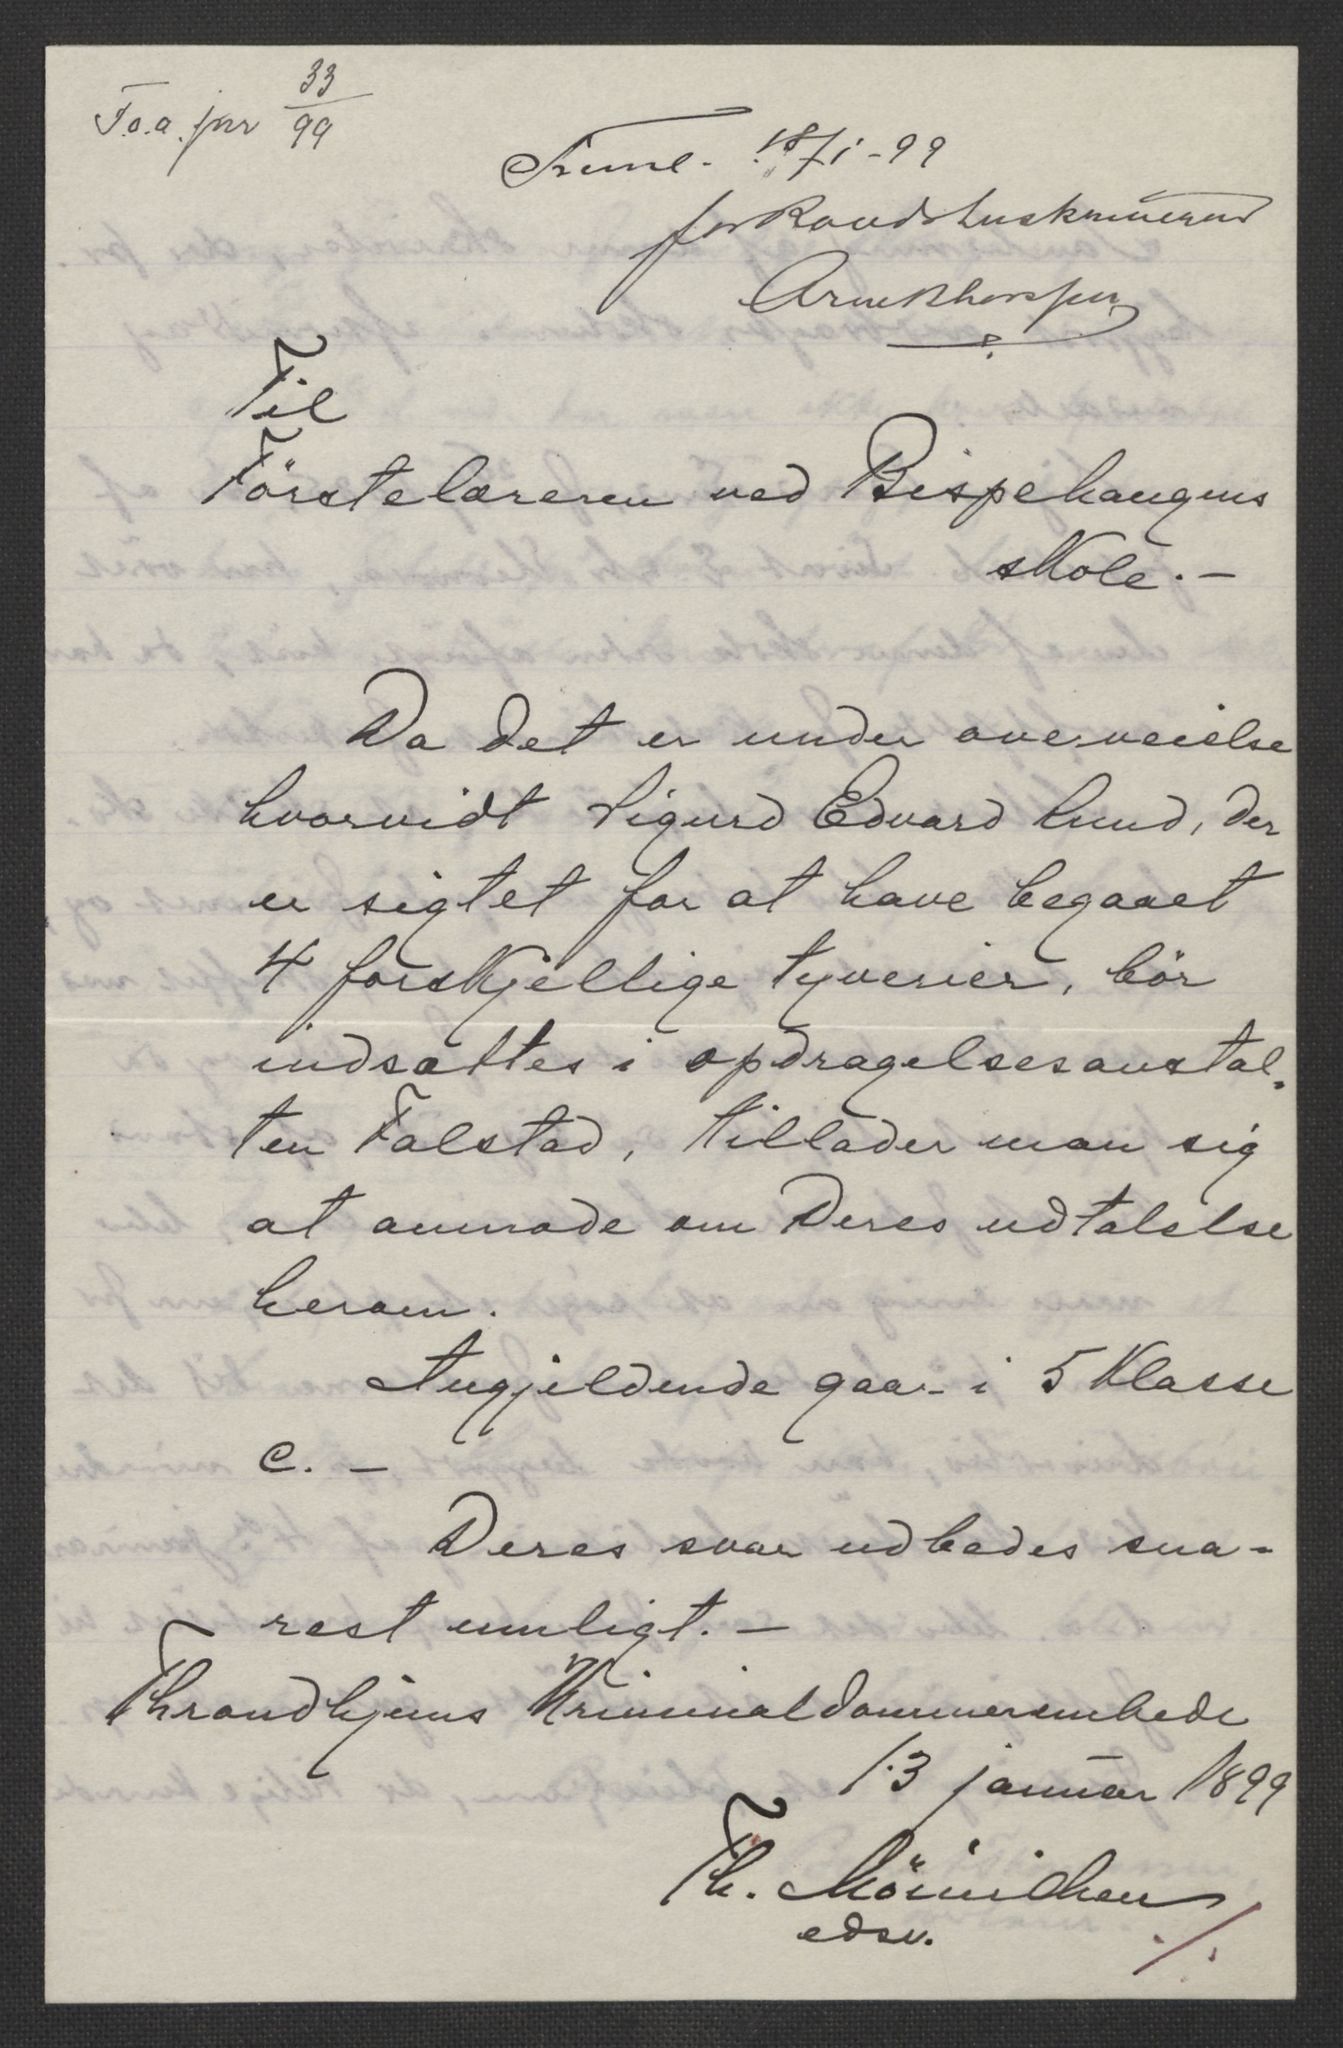 F.o.a. jnr 33/99
Freml. 18/1-99
for Raadstuskriveren
Til
Förstelæreren ved Bispehaugens
skole.-
Da det er under overveielse
hvorvidt Sigurd Edvard Lund, der
er sigtet for at have begaaet
4 forskjellige tyverier, bör
indsættes i opdragelsesanstal-
ten Falstad, tillader man sig
at anmode om Deres udtalelse
herom.
Angjeldende gaar i 5 Klasse
C. -
Deres svar udbedes sna-
rest muligt. -
Throndhjems Kriminaldommerembede
13 januar 1899
Th. Mönnichen
edsv.